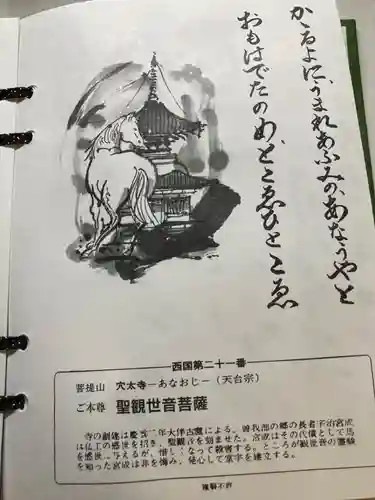 かゝるよに うまれあふみの あなうやと
おもはでたのめ とこゑひとこゑ
西国第二十一番
菩提山 穴太寺－あなおじ－（天台宗）
ご本尊 聖観世音菩薩
寺の創建は慶雲二年大伴古麿による。曽我部の郷の長者宇治宮成
は仏工の感世を招き、聖観音を刻ませた。宮成はその代償として馬
を感世に与えるが、惜しくなって殺害する。ところが観世音の霊験
を知った宮成は非を悔み、発心して堂宇を建立する。
複製不許